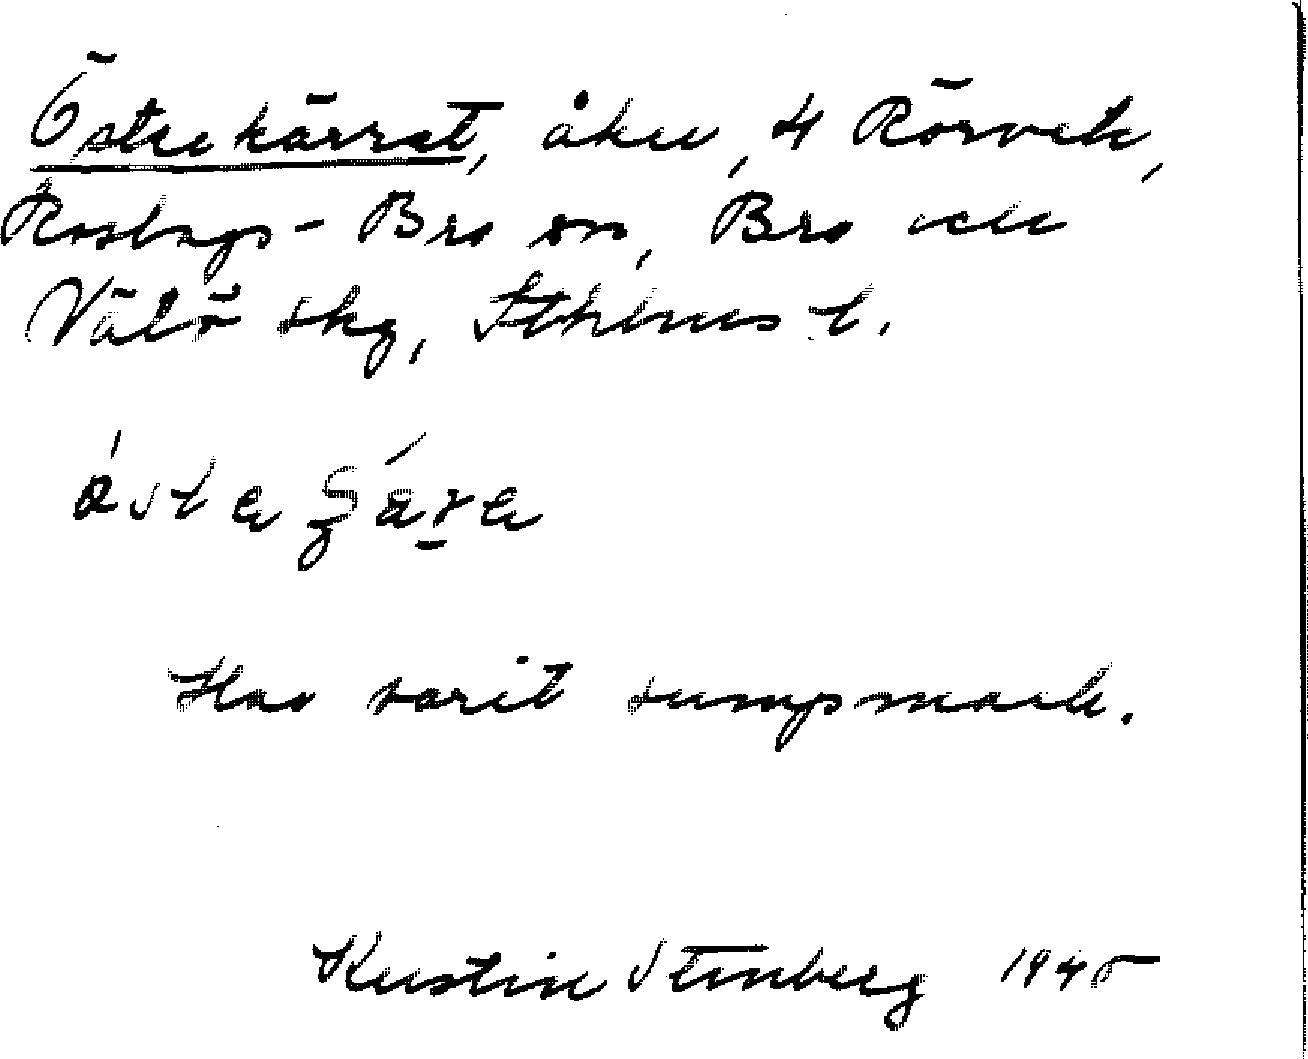 Östrekärret, åker, 4 Rörvik,
Roslags-Bro sn, Bro och
Vätö skg, Sthlms l.
Har varit sumpmark.
Kerstin Stenberg 1945